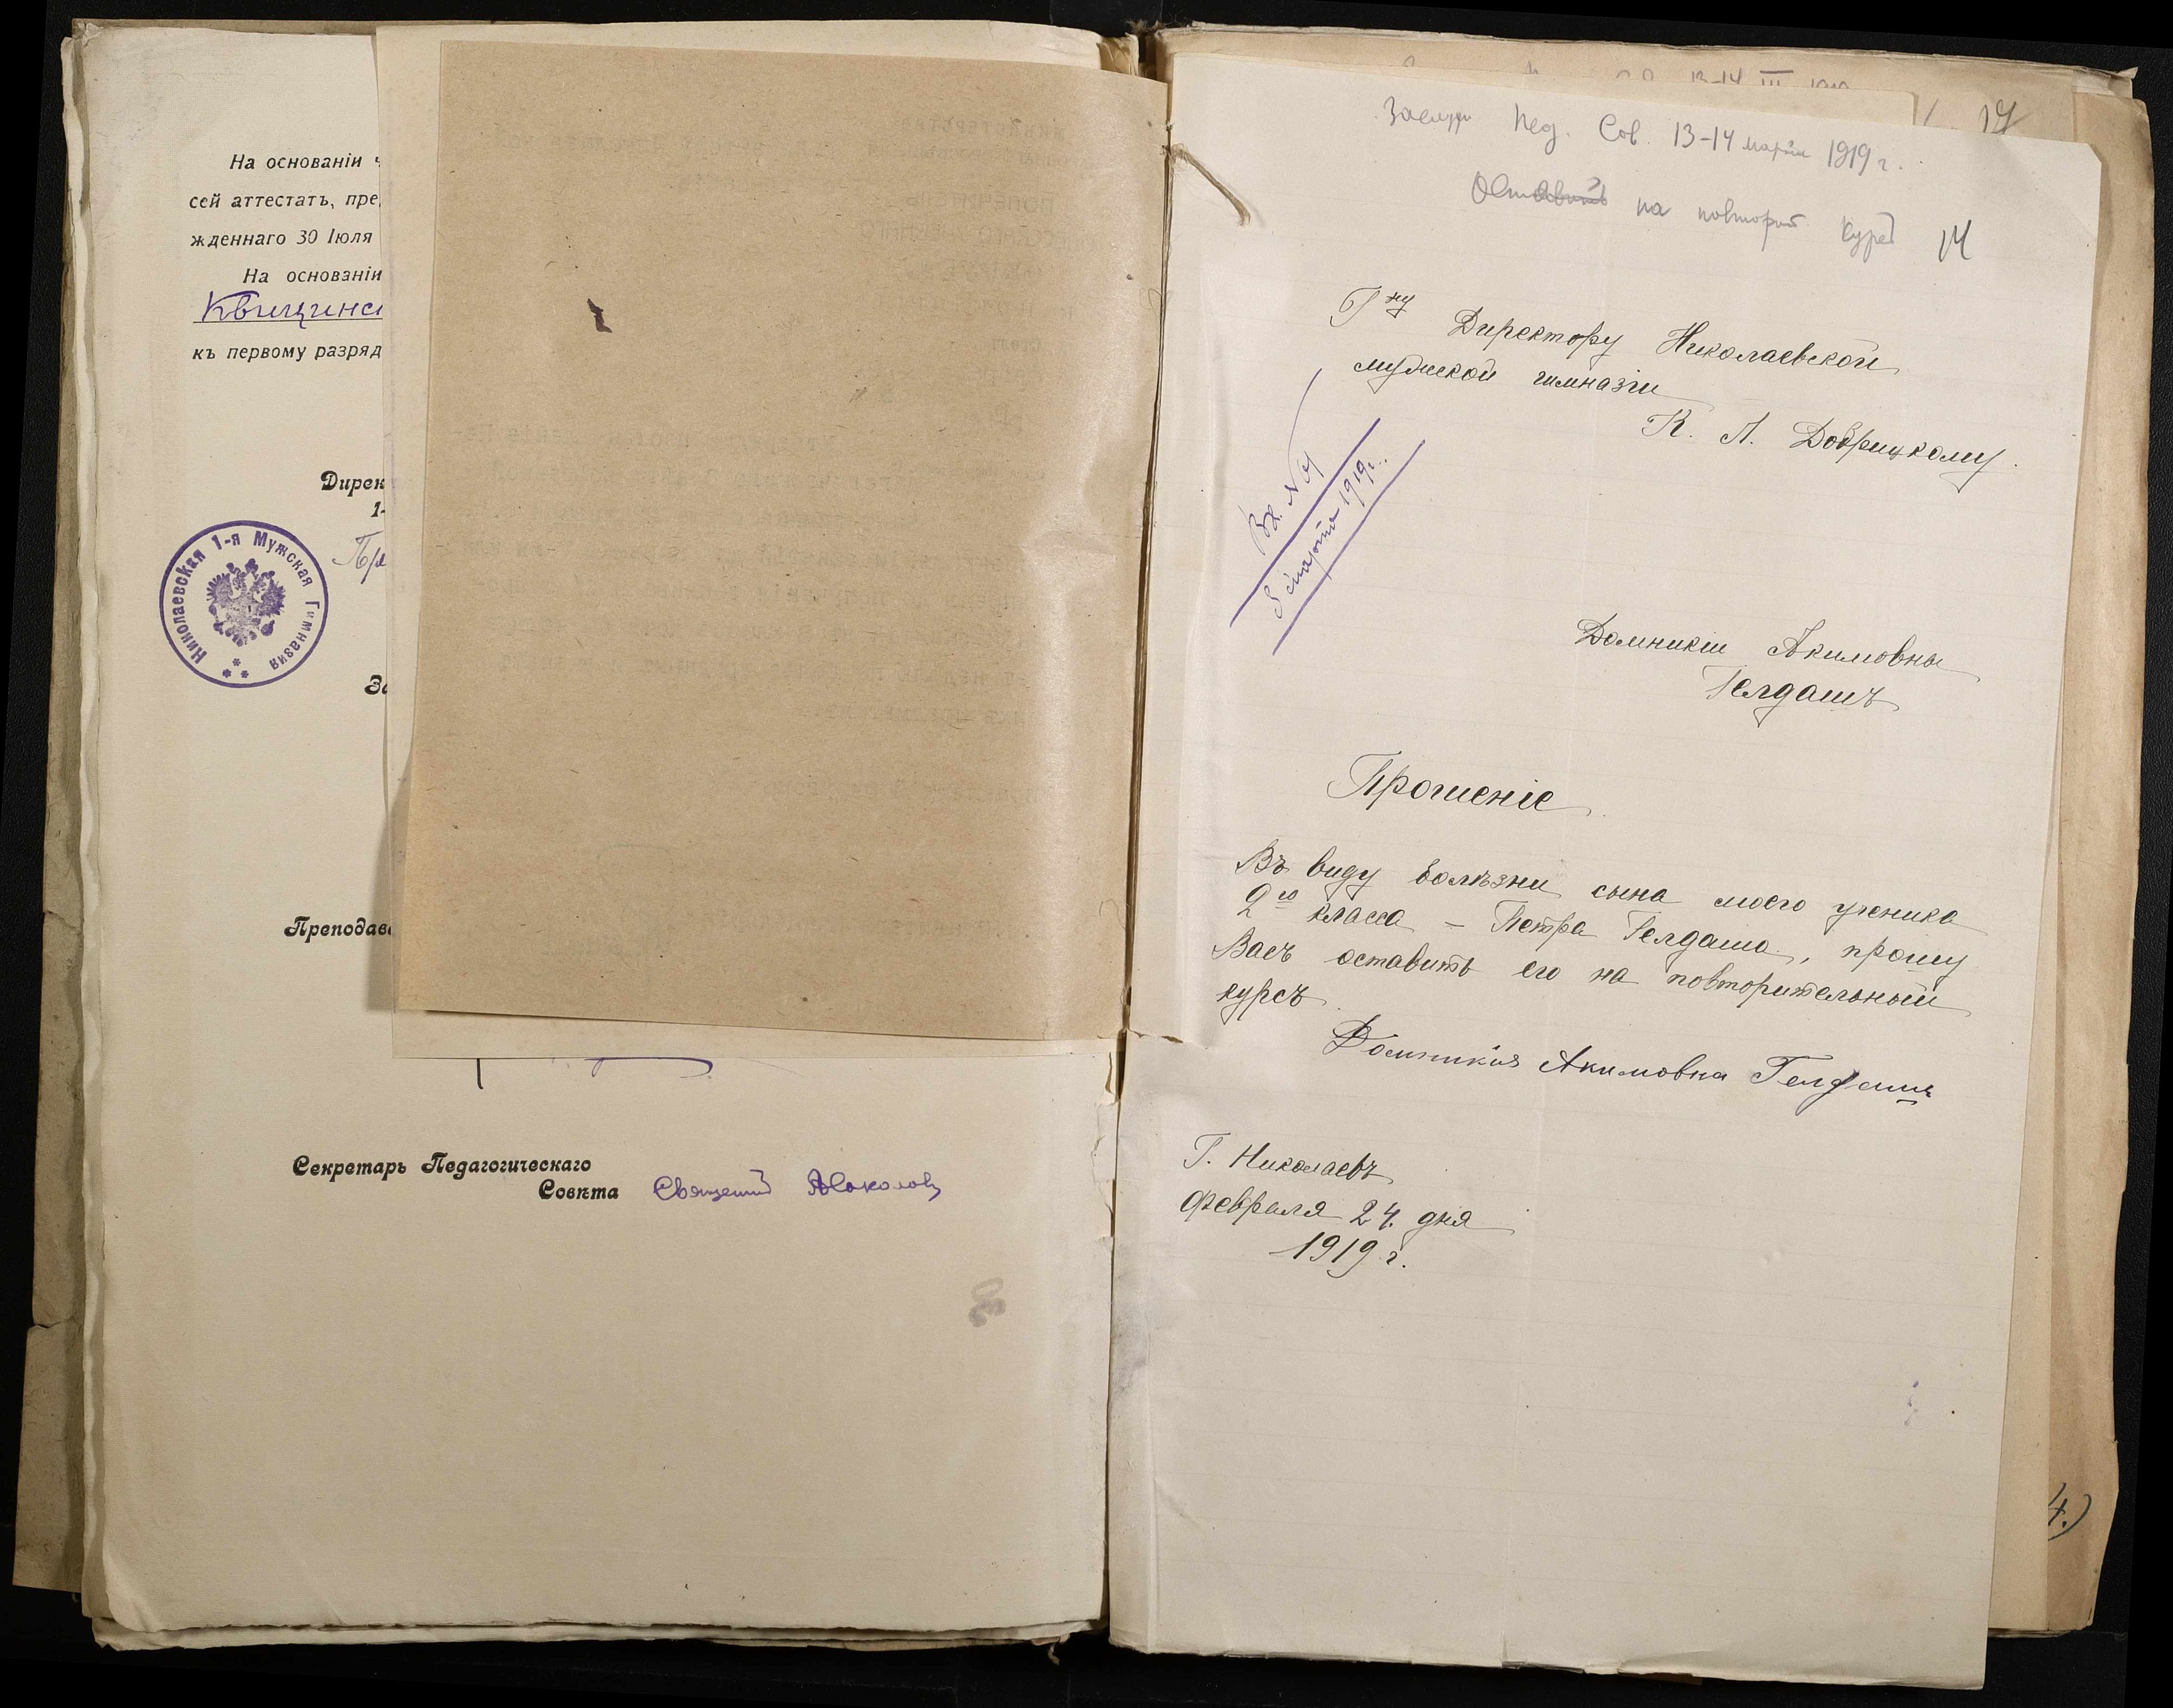 На основаніи
сей аттестатъ, пре
жденнаго 30 Іюля
На основаніи
Квицинс
къ первому разряд
Дирек
1-
Николаевская 1-я Мужская Гимназия
Преподав
Секретарь Педагогическаго
Совѣта Священ Соколовъ
13-14 III 1919
17
Пед. Сов. 13-14 марта 1919 г.
Оставить на повторит. курсъ 14
Г-ну Директору Николаевской
мужской гимназіи
К. А. Добрицкому.
Вх. №
5 марта 1919 г.
Домникіи Акимовны
Гелдашъ
Прошеніе
Въ виду болѣзни сына моего ученика
2го класса - Петра Гелдаша, прошу
Васъ оставить его на повторительный
курсъ.
Домникія Акимовна Гелдашъ
Г. Николаевъ
Февраля 24 дня
1919 г.
4.)